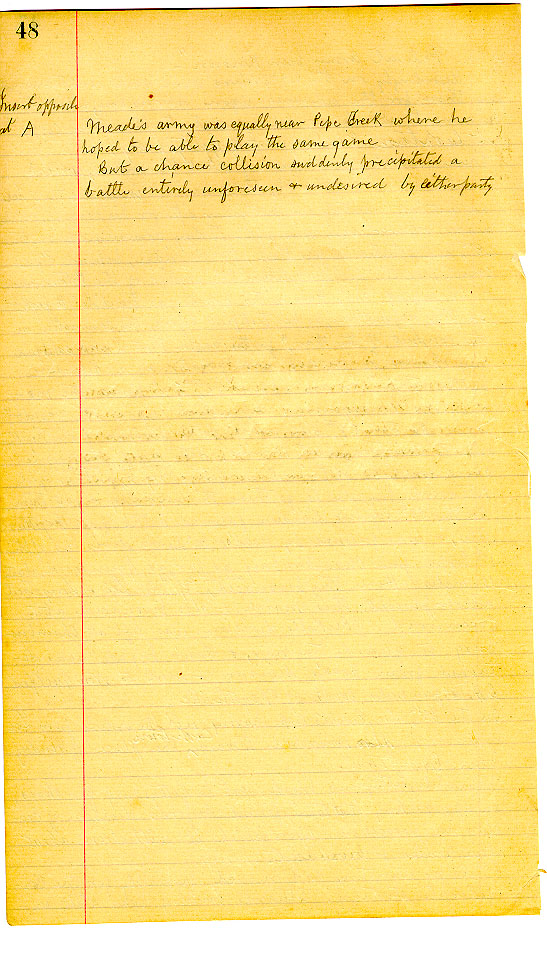 48
Insert opposite
at A
Meade's army was equally near Pipe Creek where he
hoped to be able to play the same game
But a chance collision suddenly precipitated a
battle entirely unforeseen & undesired by either party